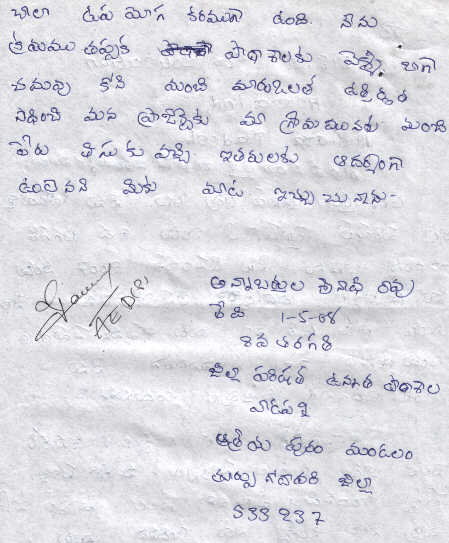 చాలా ఉప యోగ కరముగా ఉంది. నేను
క్రమము తప్పక పాఠశాలకు వెళ్ళి బాగా
చదువు కొని మంచి మార్కులతో ఉత్తీర్ణత
సాధించి మన ప్రాజెక్టుకు మా గ్రామమునకు మంచి
పేరు తీసుకు వచ్చి ఇతరులకు ఆదర్శంగా
ఉంటానని మీకు మాట ఇచ్చు చు న్నాను -
అన్నాబత్తుల శ్రీనాథ్ రావు
తేది 1-5-08
AED(P)
9వ తరగతి
జిల్లా పరిషత్ ఉన్నత పాఠశాల
వాడపల్లి
ఆత్రేయ పురం మండలం
తూర్పు గోదావరి జిల్లా
533 237